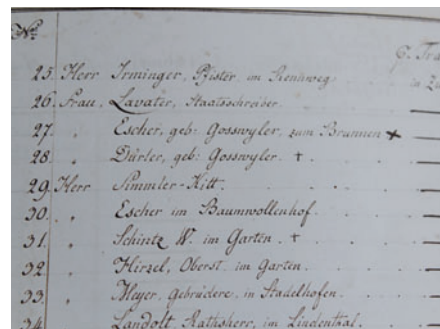 No.
G. Tra
25. Herr Irminger, Pfister im Rennweg
26. Frau, Lavater, Staatsschreiber
27. " Escher, geb: Gosswyler, zum Brunnen +
28. " Dürler, geb: Gosswyler. +
29. Herr Simmler-Kitt.
30. " Escher im Baumwollenhof
31. " Schintz W. im Garten. +
32 " Hirzel, Oberst. im Garten.
33. " Meyer, Gebrüdere, in Stadelhofen.
34. Landolt, Rathsherr, im Lindenthal.